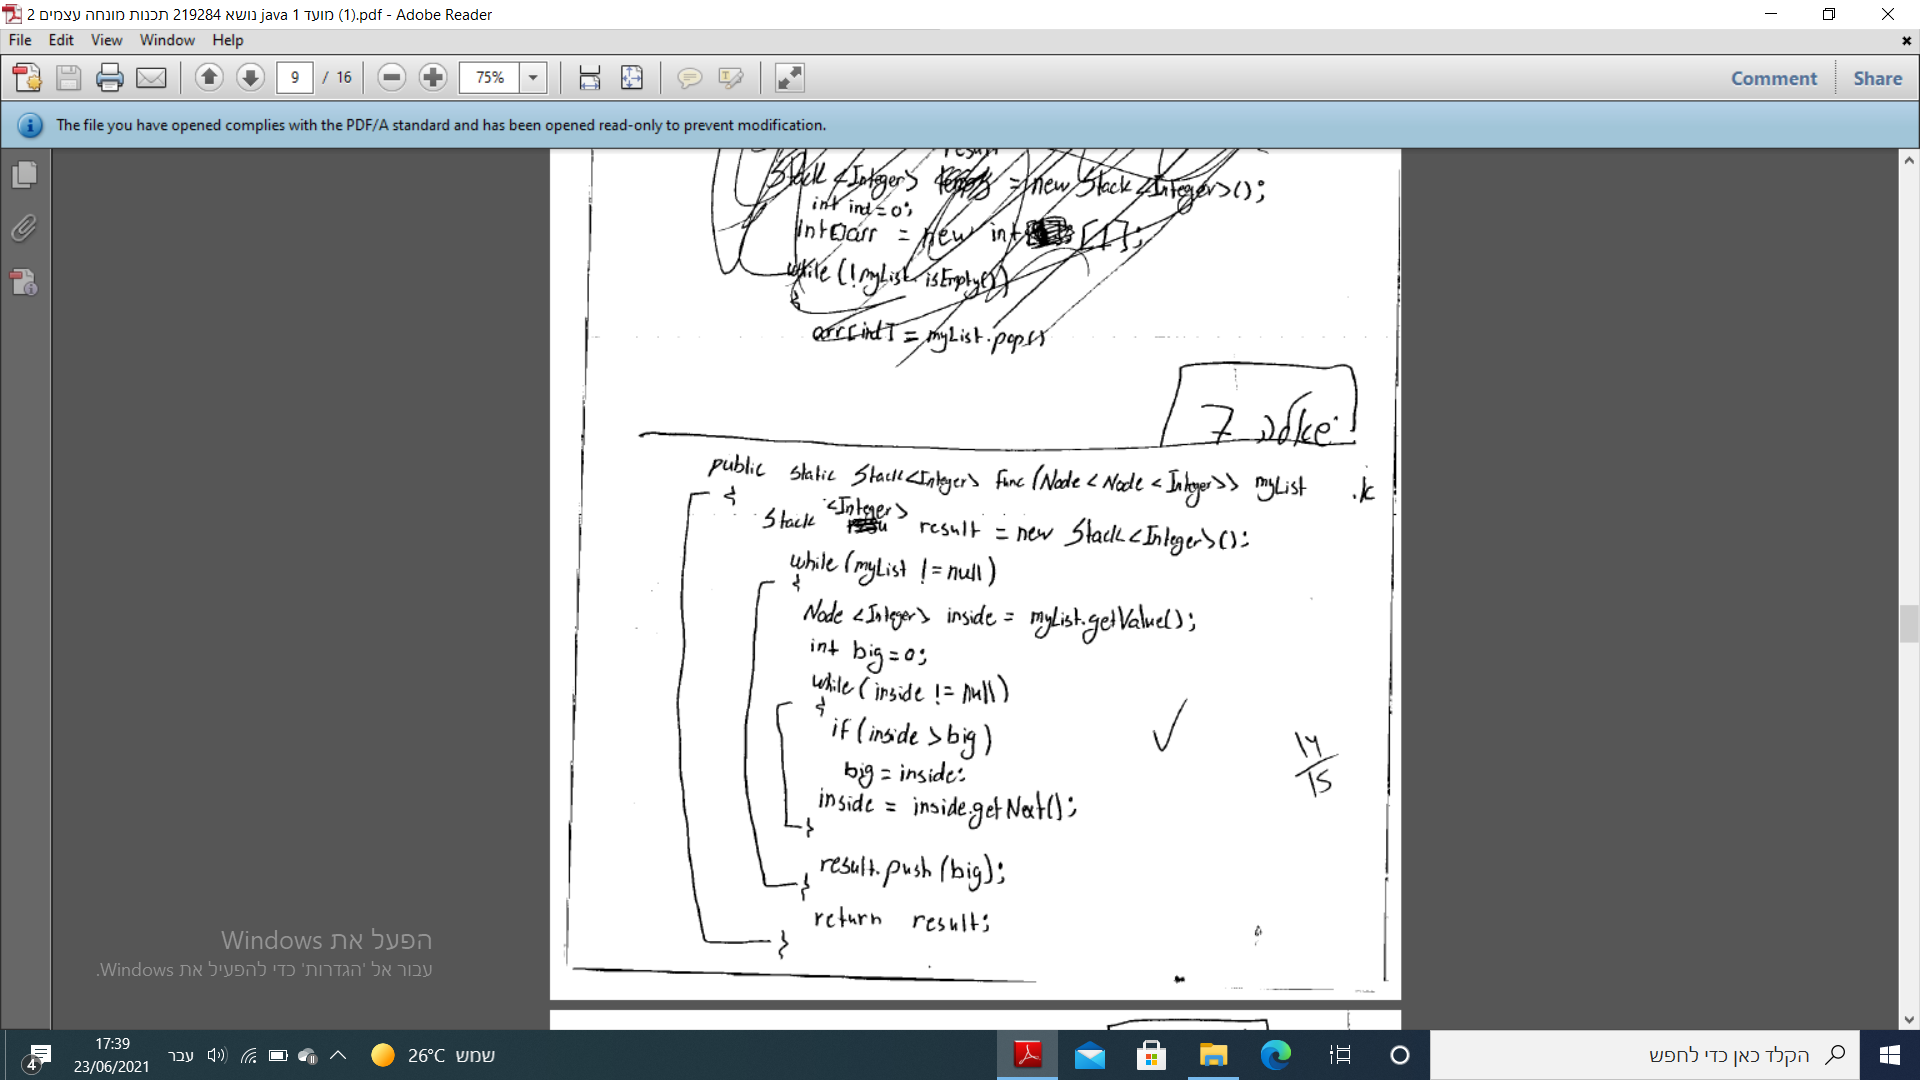 2 תכנות מונחה עצמים 219284 נושא java 1 מועד (1).pdf - Adobe Reader
File Edit View Window Help
9 / 16 75% Comment Share
The file you have opened complies with the PDF/A standard and has been opened read-only to prevent modification.
Stack <Integer> = new Stack<Integer>();
int ind=0;
int[] arr = new int [1];
while (!myList.isEmpty())
{
arr[ind] = myList.pop()
שאלה 7
public static Stack<Integer> func(Node<Node<Integer>> myList א.
{
Stack <Integer> result = new Stack<Integer>();
while (myList != null)
{
Node <Integer> inside = myList.getValue();
int big=0;
while (inside != null)
{
if (inside > big)
big = inside;
inside = inside.getNext();
}
result.push(big);
}
return result;
}
14
15
הפעל את Windows
עבור אל 'הגדרות' כדי להפעיל את Windows.
4
17:39
23/06/2021
עבר
26°C שמש
הקלד כאן כדי לחפש